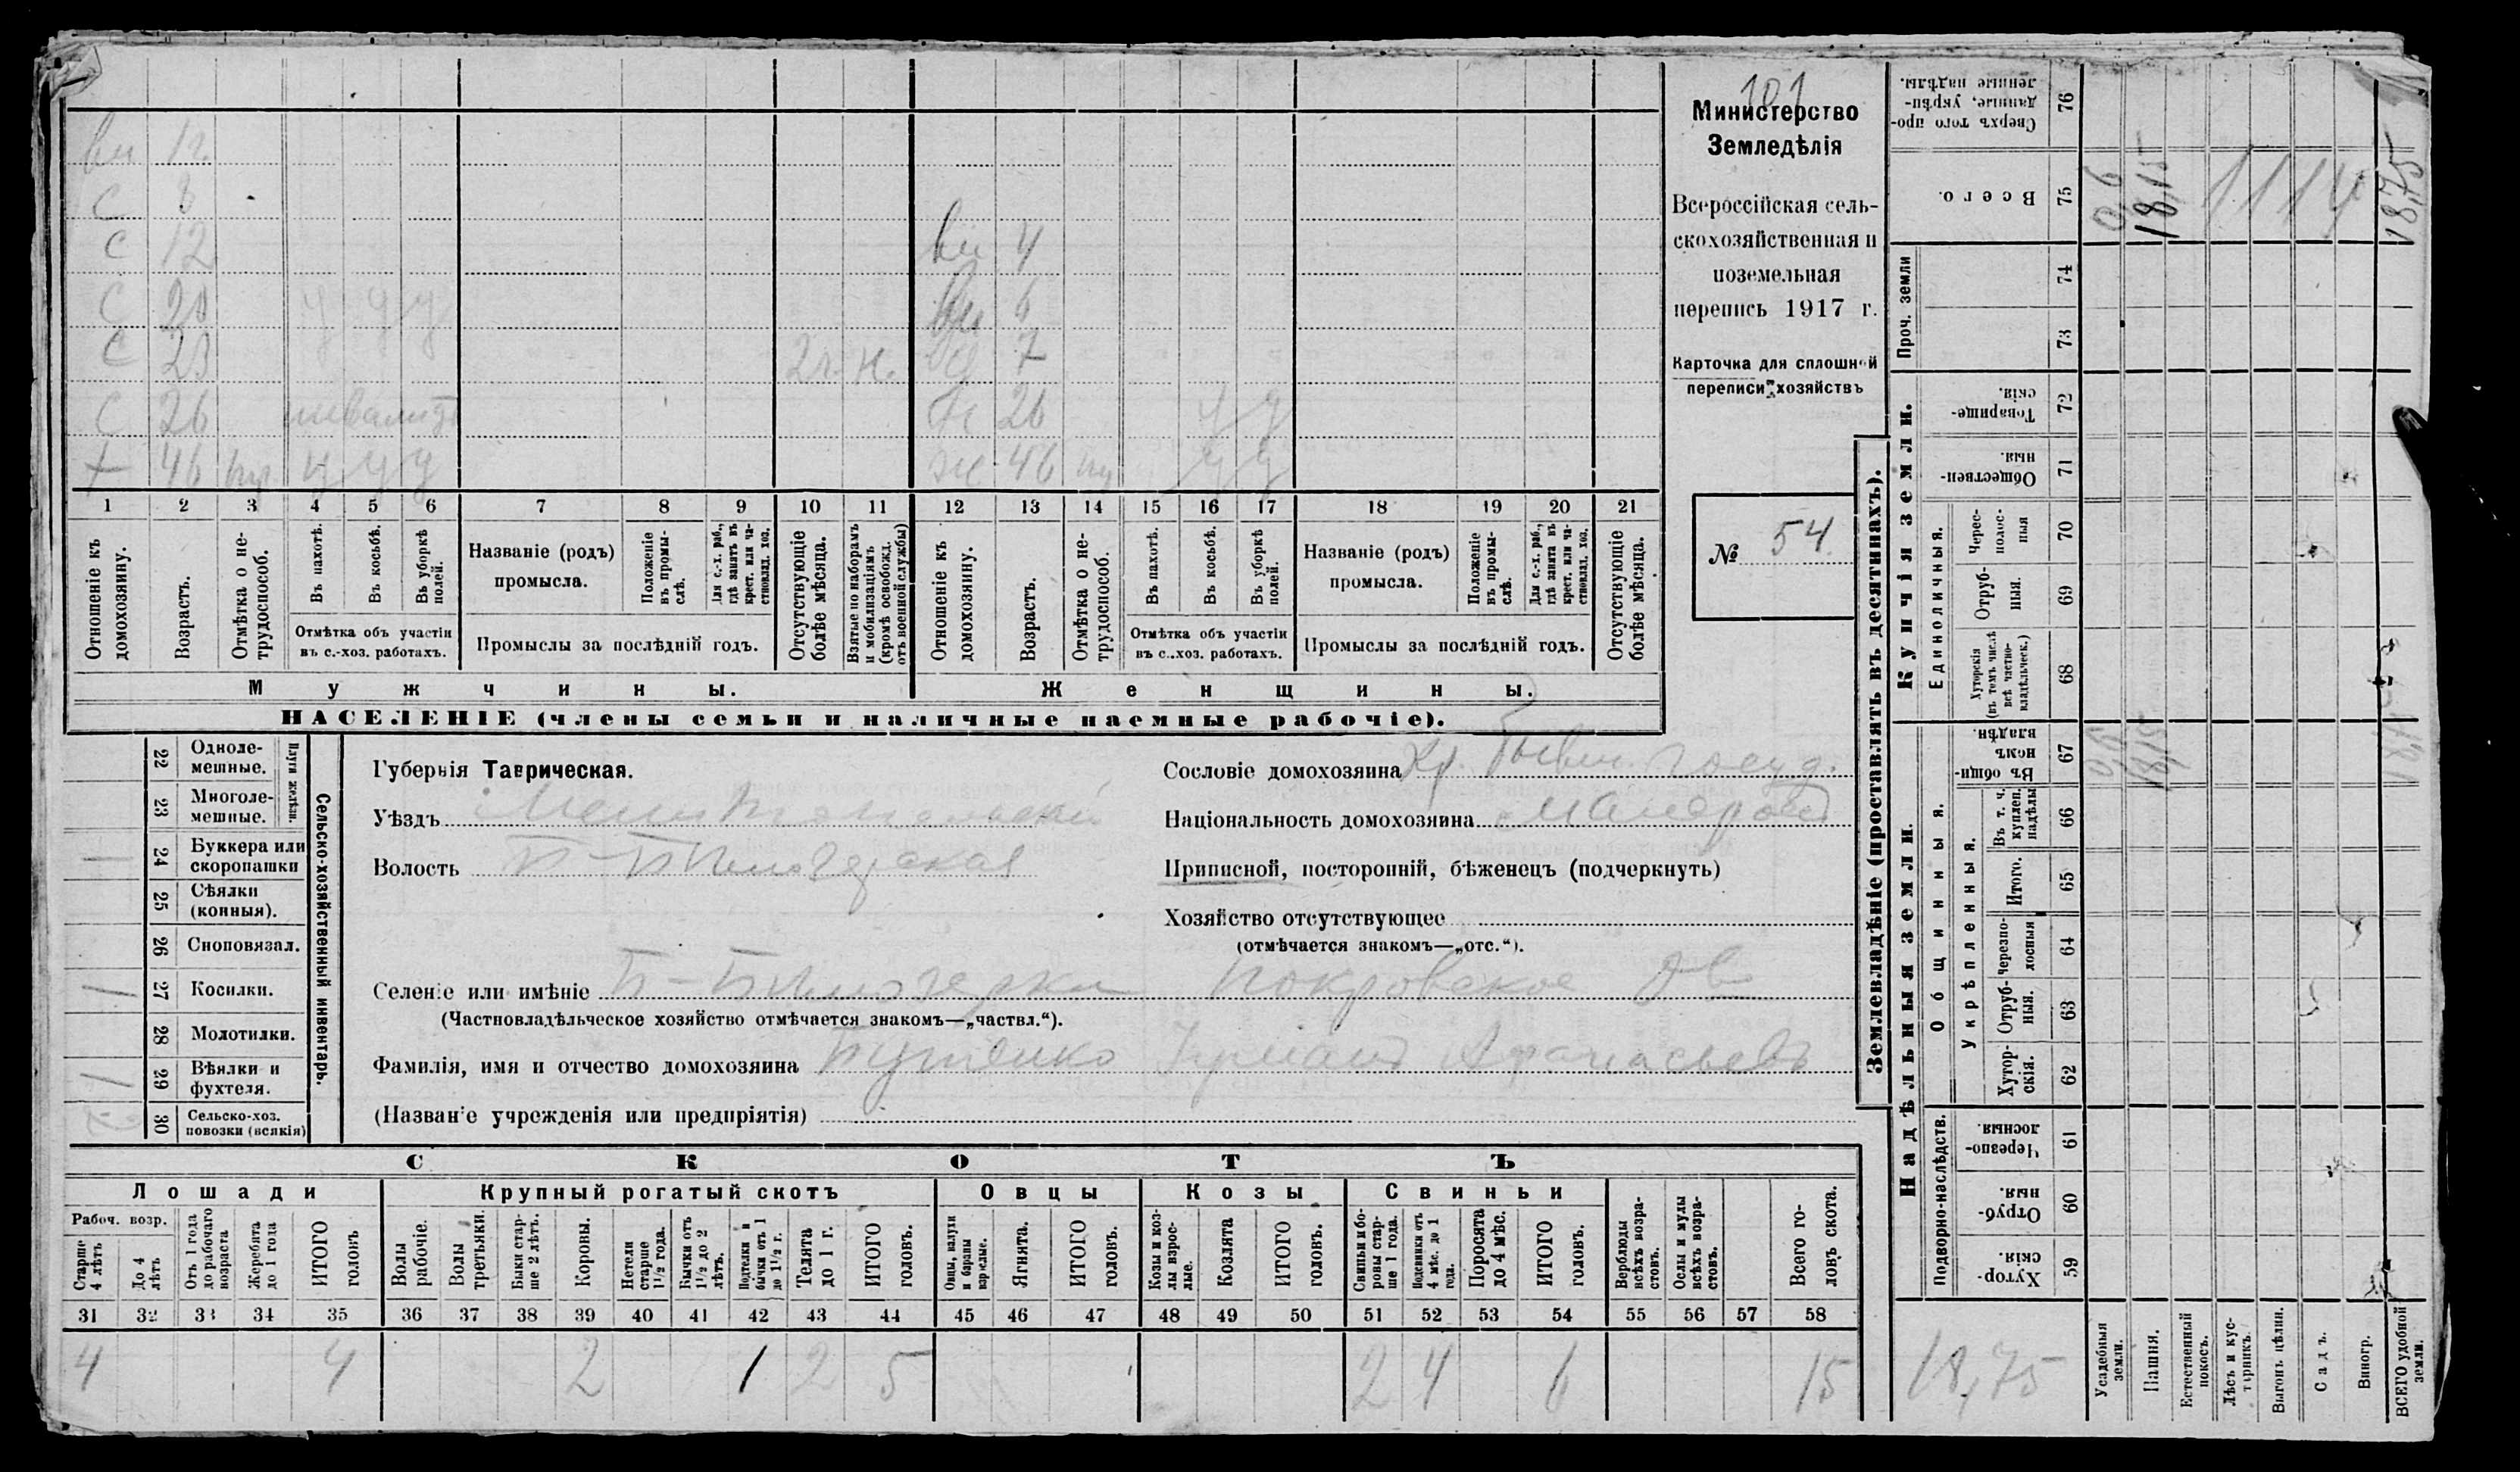 101
Министерство
Земледѣлія
Всероссійская сель-
скохозяйственная и
поземельная
перепись 1917 г.
Карточка для сплошной
переписи хозяйствъ
№ 54
вн 12
с 8
с 12
с 20 у у у
с 23 2 г. н.
с 26 инвалидъ
х 46 нр. у у у
вн 4
вн 6
7
26 у у
ж 46 у у
1 2 3 4 5 6 7 8 9 10 11 12 13 14 15 16 17 18 19 20 21
Отношеніе къ домохозяину.
Возрастъ.
Отмѣтка о не-трудоспособ.
Въ пахотѣ.
Въ косьбѣ.
Въ уборкѣ полей.
Отмѣтка объ участіи
въ с.-хоз. работахъ.
Названіе (родъ)
промысла.
Положеніе въ промы-слѣ.
Для с.-х. раб., гдѣ занятъ въ крест. или ча-стновлад. хоз.
Промыслы за послѣдній годъ.
Отсутствующіе болѣе мѣсяца.
Взятые по наборамъ и мобилизаціямъ (кромѣ освобожд. отъ военной службы)
Отношеніе къ домохозяину.
Возрастъ.
Отмѣтка о не-трудоспособ.
Въ пахотѣ.
Въ косьбѣ.
Въ уборкѣ полей.
Отмѣтка объ участіи
въ с.-хоз. работахъ.
Названіе (родъ)
промысла.
Положеніе въ промы-слѣ.
Для с.-х. раб., гдѣ занята въ крест. или ча-стновлад. хоз.
Промыслы за послѣдній годъ.
Отсутствующіе болѣе мѣсяца.
Мужчины.
Женщины.
НАСЕЛЕНІЕ (члены семьи и наличные наемные рабочіе).
22 Одноле-мешные.
23 Многоле-мешные.
Плуги желѣзн.
24 Буккера или скоропашки
25 Сѣялки (конныя).
26 Сноповязал.
27 Косилки. 1
28 Молотилки.
29 Вѣялки и фухтеля. 1
30 Сельско-хоз. повозки (всякія)
Сельско-хозяйственный инвентарь.
Губернія Таврическая.
Уѣздъ Мелитопольскій
Волость Б-Бѣлозерская
Сословіе домохозяина Кр. бывш. госуд.
Національность домохозяина Малоросс
Приписной, посторонній, бѣженецъ (подчеркнуть)
Хозяйство отсутствующее
(отмѣчается знакомъ—„отс.“).
Селеніе или имѣніе Б-Бѣлозерка Покровское
(Частновладѣльческое хозяйство отмѣчается знакомъ—„частвл.“).
Фамилія, имя и отчество домохозяина Бутенко Афанасьевъ
(Названіе учрежденія или предпріятія)
СКОТЪ
Лошади
Крупный рогатый скотъ
Овцы
Козы
Свиньи
Рабоч. возр.
Старше 4 лѣтъ
До 4 лѣтъ
Отъ 1 года до рабочаго возраста
Жеребята до 1 года
ИТОГО головъ
Волы рабочіе.
Волы третьяки.
Быки стар-ше 2 лѣтъ.
Коровы.
Нетели старше 1½ года.
Бычки отъ 1½ до 2 лѣтъ.
Подтелки и бычки отъ 1 до 1½ г.
Телята до 1 г.
ИТОГО головъ.
Овцы, валухи и бараны взрослые.
Ягнята.
ИТОГО головъ.
Козы и коз-лы взрос-лые.
Козлята
ИТОГО головъ.
Свиньи и бо-ровы стар-ше 1 года.
Подсвинки отъ 4 мѣс. до 1 года.
Поросята до 4 мѣс.
ИТОГО головъ.
Верблюды всѣхъ возра-стовъ.
Ослы и мулы всѣхъ возра-стовъ.
Всего го-ловъ скота.
31 32 33 34 35 36 37 38 39 40 41 42 43 44 45 46 47 48 49 50 51 52 53 54 55 56 57 58
4 4 2 1 2 5 2 4 6 15
Землевладѣніе (проставлять въ десятинахъ).
Сверхъ того про-данные, укрѣп-ленные надѣлы. 76
Всего. 75 0,6 18,15 18,75
Проч. земли
74
73
Купчія земли.
Товарище-скія. 72
Обществен-ныя. 71
Единоличныя.
Черес-полос-ныя 70
Отруб-ныя. 69
Хуторскія (въ томъ числѣ всѣ частно-владѣльческ.) 68
Надѣльныя земли.
Общинныя.
Въ общин-номъ владѣн. 67 0,6 18,15
Укрѣпленныя.
Въ т. ч. куплен. надѣлы 66
Итого. 65
Черезпо-лосныя 64
Отруб-ныя. 63
Хутор-скія. 62
Подворно-наслѣдств.
Черезпо-лосныя. 61
Отруб-ныя. 60
Хутор-скія. 59
18,75
Усадебныя земли.
Пашня.
Естественный покосъ.
Лѣсъ и кус-тарникъ.
Выгонъ цѣлин.
Садъ.
Виногр.
ВСЕГО удобной земли.